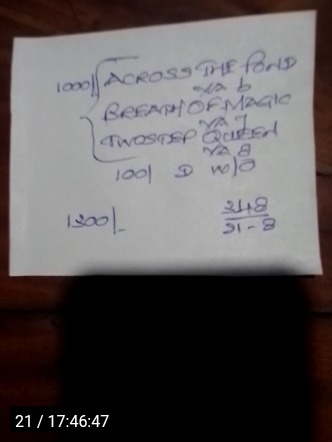 1000/ ACROSS THE POND
VA 6
BREATH OF MAGIC
VA 7
TWOSTEP QUEEN
VA 8
100/ D W/O
1300/-
21 / 17:46:47